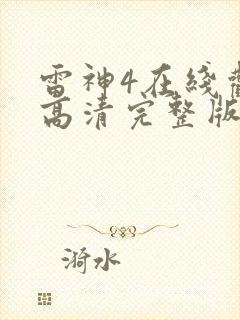 雷神4在线
高清完整版
漪水